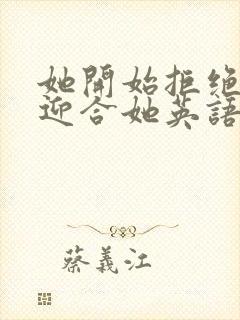 她開始拒絕
迎合她英語
蔡義江